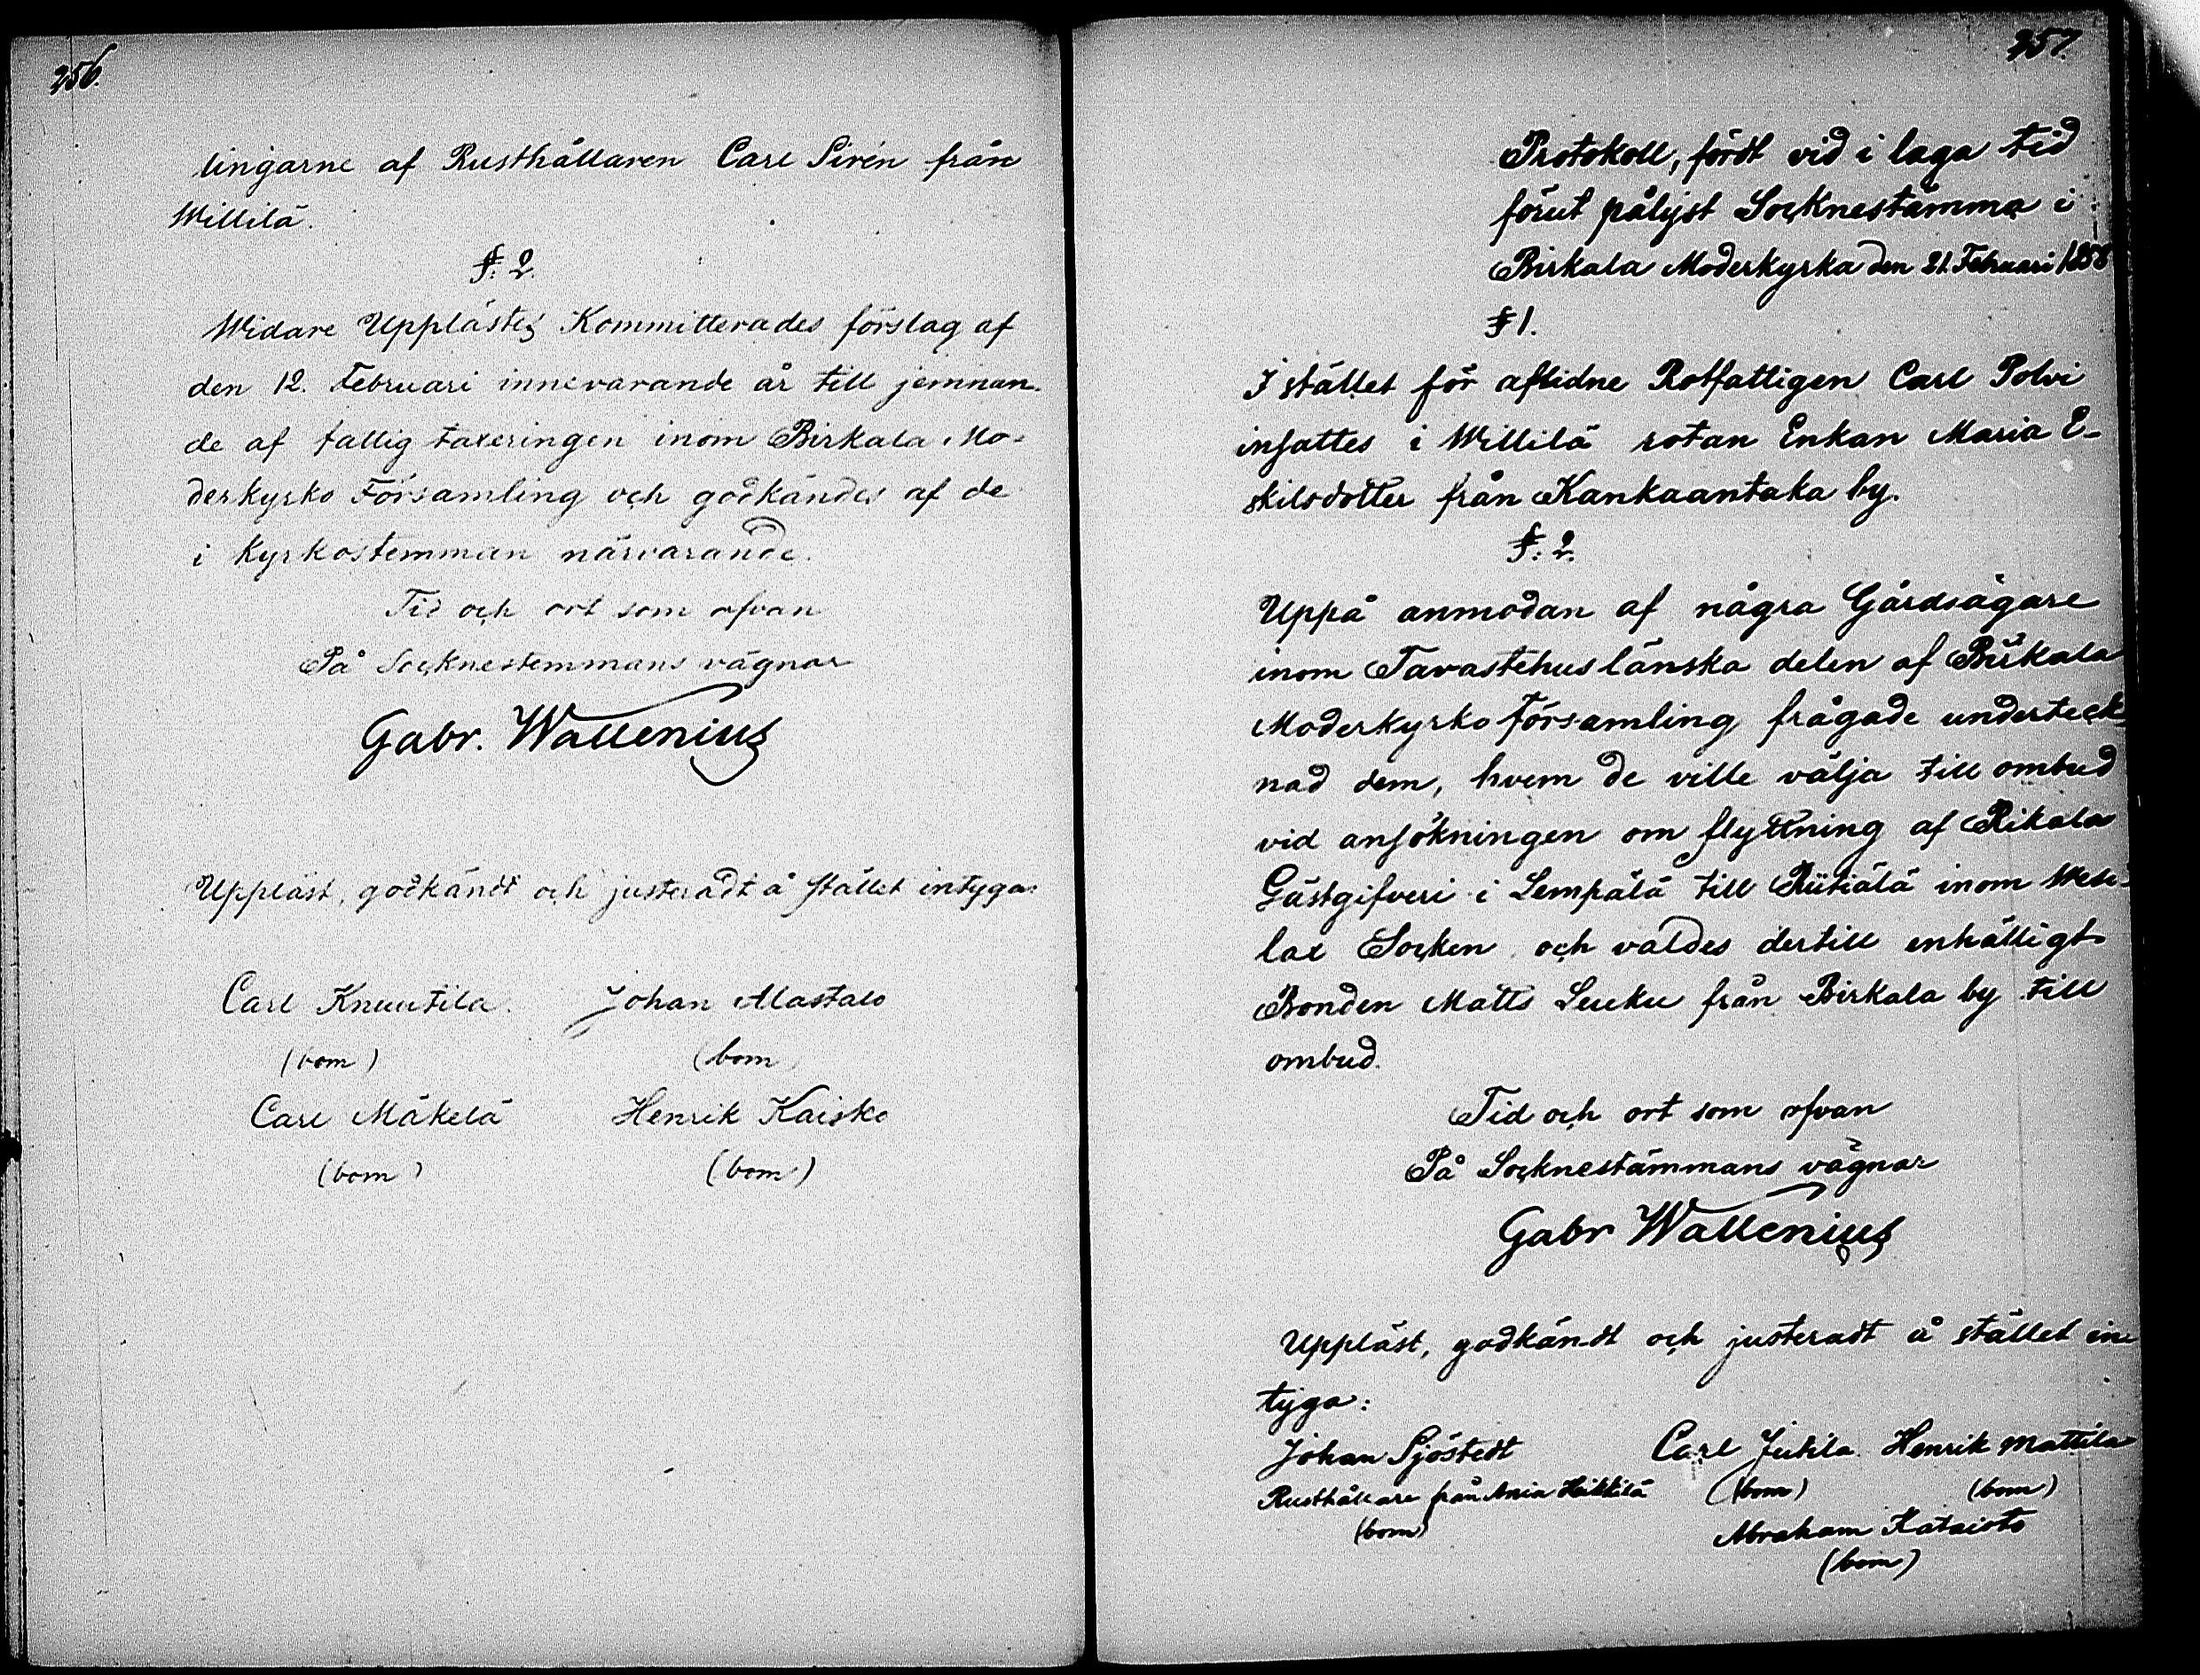 256.
lingarne af Rusthållaren Carl Sirén från
Willilä.
§. 2.
Widare Upplästes Kommitterades förslag af
den 12. Februari innevarande år till jemnan-
de af fattig taxeringen inom Birkala Mo-
derkyrko Församling och godkändes af de
i Kyrkostemman närvarande.
Tid och ort som ofvan
På Socknestemmans vägnar
Gabr. Wallenius
Uppläst, godkändt och justeradt å stället intyga:
Carl Knuutila. Johan Alastalo
(bom) (bom)
Carl Mäkelä Henrik Kaisko
(bom) (bom)
257.
Protokoll, fördt vid i laga tid
förut pålyst Socknestämma i
Birkala Moderkyrka den 21. Februari 1858
§ 1.
I stället för aflidne Rotfattigen Carl Polvi
insattes i Willilä rotan Enkan Maria E-
skilsdotter från Kankaantaka by.
§. 2.
Uppå anmodan af några Gårdsägare
inom Tavastehus länska delen af Birkala
Moderkyrko Församling frågade underteck
nad dem, hvem de ville välja till ombud
vid ansökningen om flyttning af Rikala
Gästgifveri i Lempälä till Riitiälä inom Wesi-
lax Socken och valdes dertill enhälligt
Bonden Matts Leuku från Birkala by till
ombud.
Tid och ort som ofvan
På Socknestämmans vägnar
Gabr Wallenius
Uppläst, godkändt och justeradt å stället in
tyga:
Johan Sjöstedt Carl Jutila. Henrik Mattila
Rusthållare från Ania Heikkilä (bom) (bom)
(bom) Abraham Kataisto
(bom)